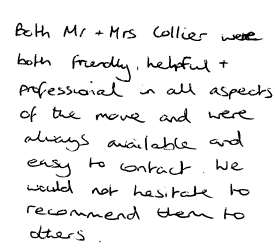 Both Mr + Mrs Collier were
both friendly, helpful +
professional in all aspects
of the move and were
always available and
easy to contact. We
would not hesitate to
recommend them to
others.